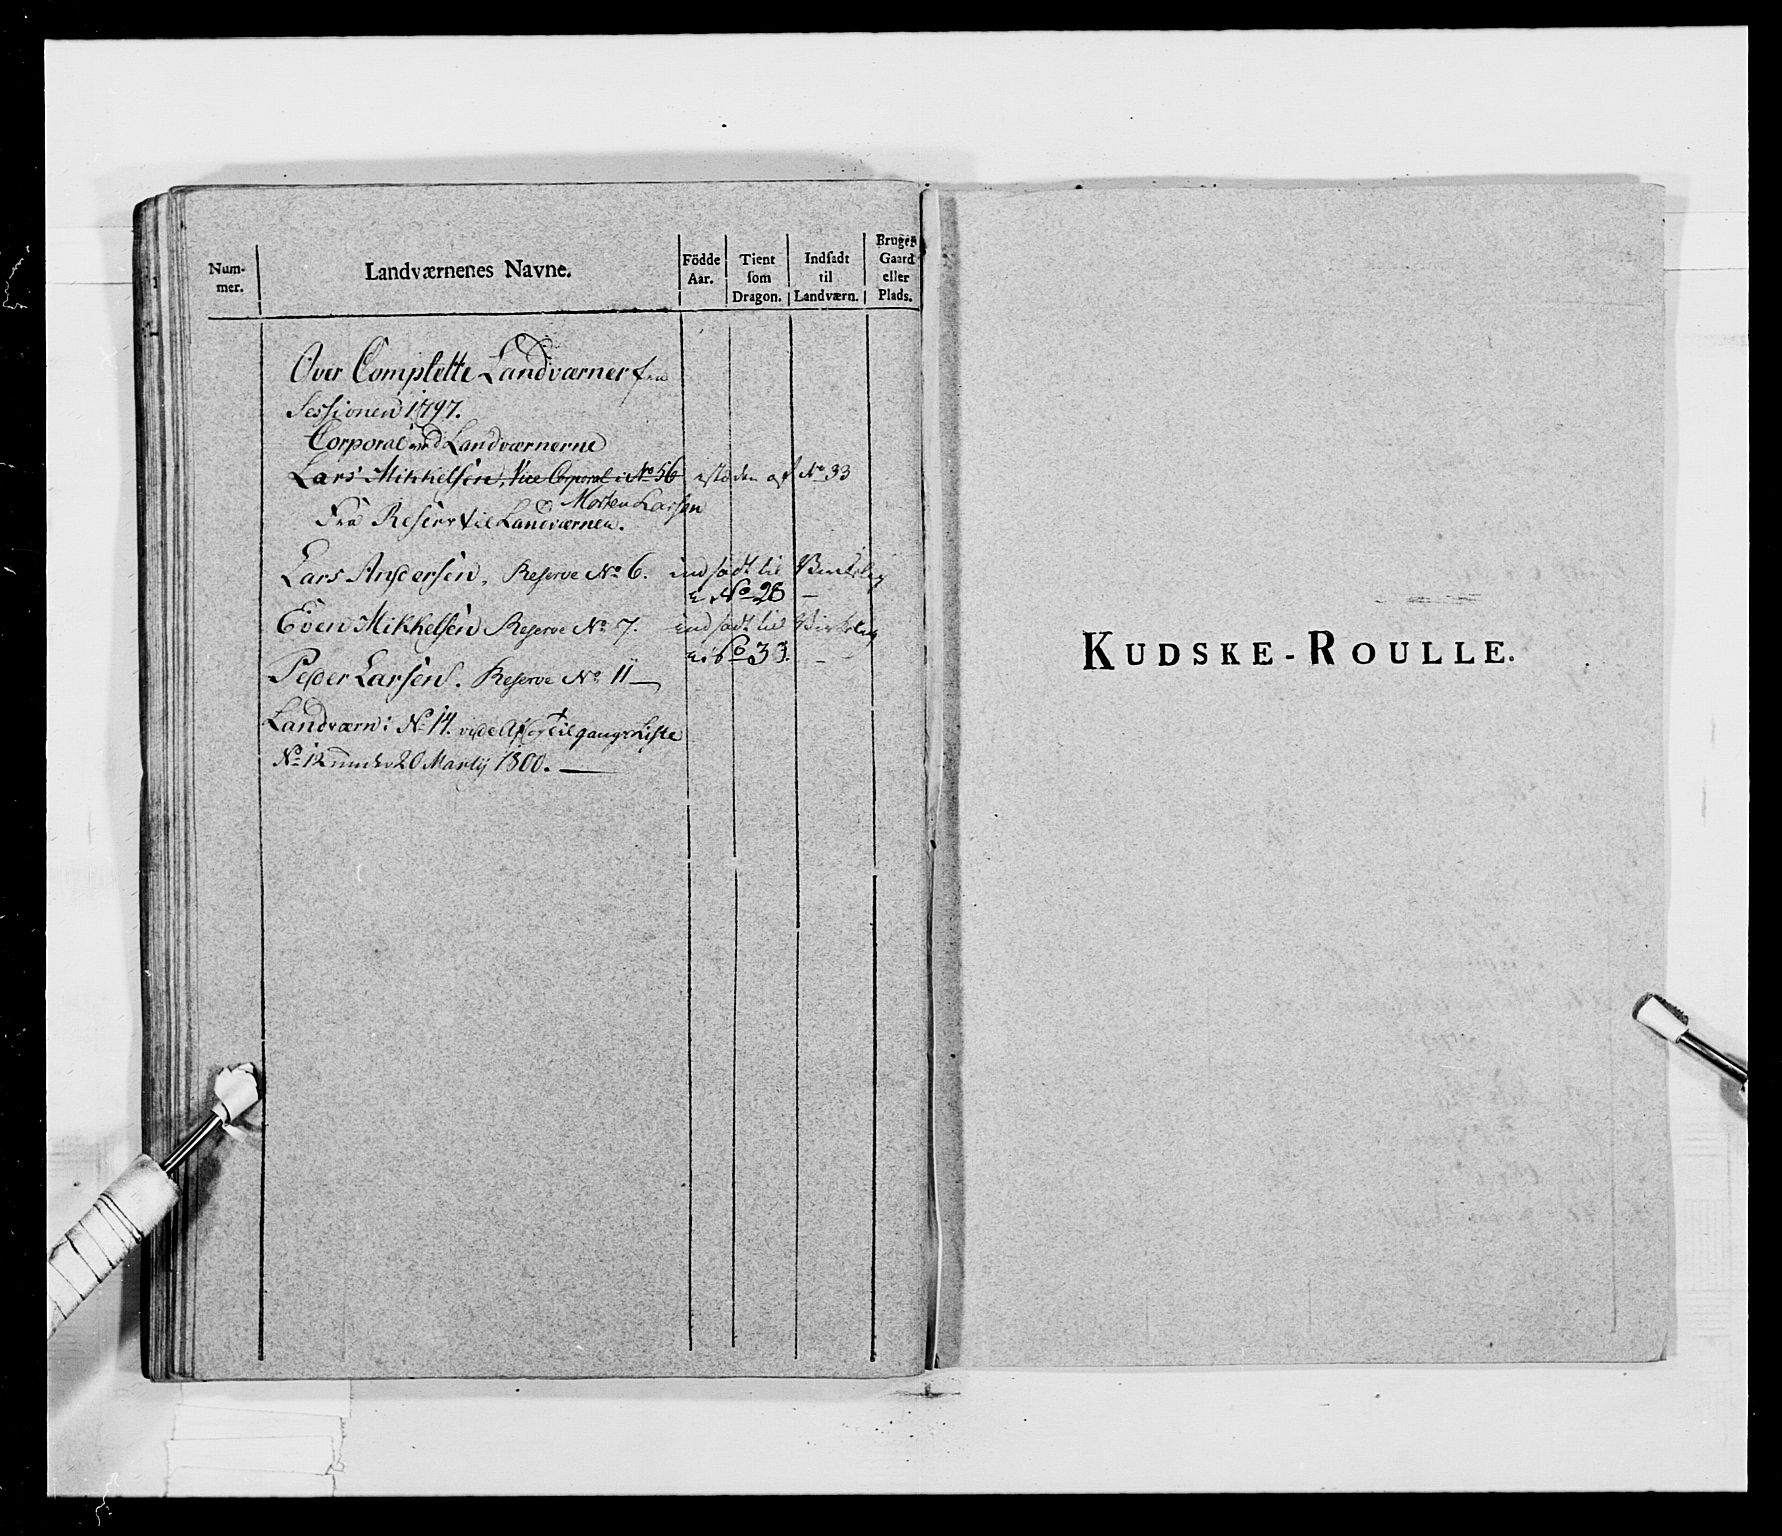 Num-
mer.
Landværnenes Navne.
Födde
Aar.
Tient
som
Dragon.
Indsadt
til
Landværn.
Bruger
Gaard
eller
Plads.
Over Complette Landværner fra
Sessionen 1797.
Corporal ved Landværnerne
Lars Mikkelsen, Vice Corporal i No 56 af No 33
Morten Larsen
Fra Reserv til Landværnen.
Lars Andersen, Reserve No 6. indsadt til
No 28 —
Even Mikkelsen Reserve No 7. indsadt til
33. —
Peder Larsen. Reserve No 11 —
Landværn: No 14. vide Af og tilgangs Liste
No 12 under 20 Martij 1800. —
KUDSKE-ROULLE.